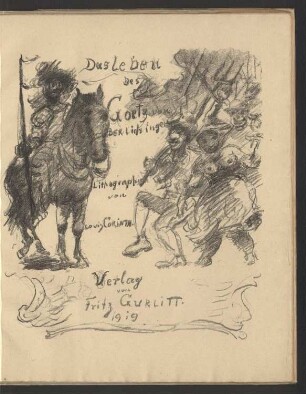 Das Leben
des
Goetz von
Berlichingen
Lithographien
von
Louis Corinth.
Verlag
von
Fritz GURLITT.
1919